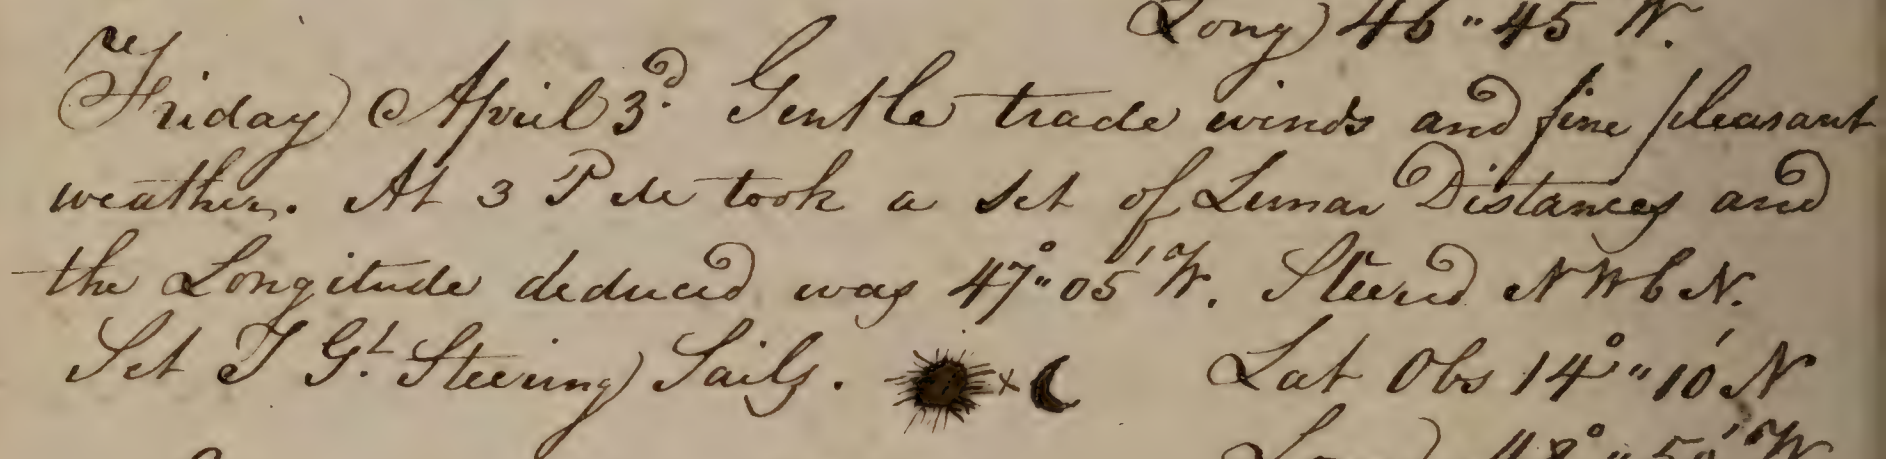 Long 46 " 45 W.
Friday April 3d. Gentle trade winds and fine pleasant
weather. At 3 P M took a set of Lunar Distances and
the Longitude deduced was 47° " 05' W. Steered N W b N.
Set T Gt. Steering Sails. Lat Obs 14° " 10' N
Long 48° " 50' W